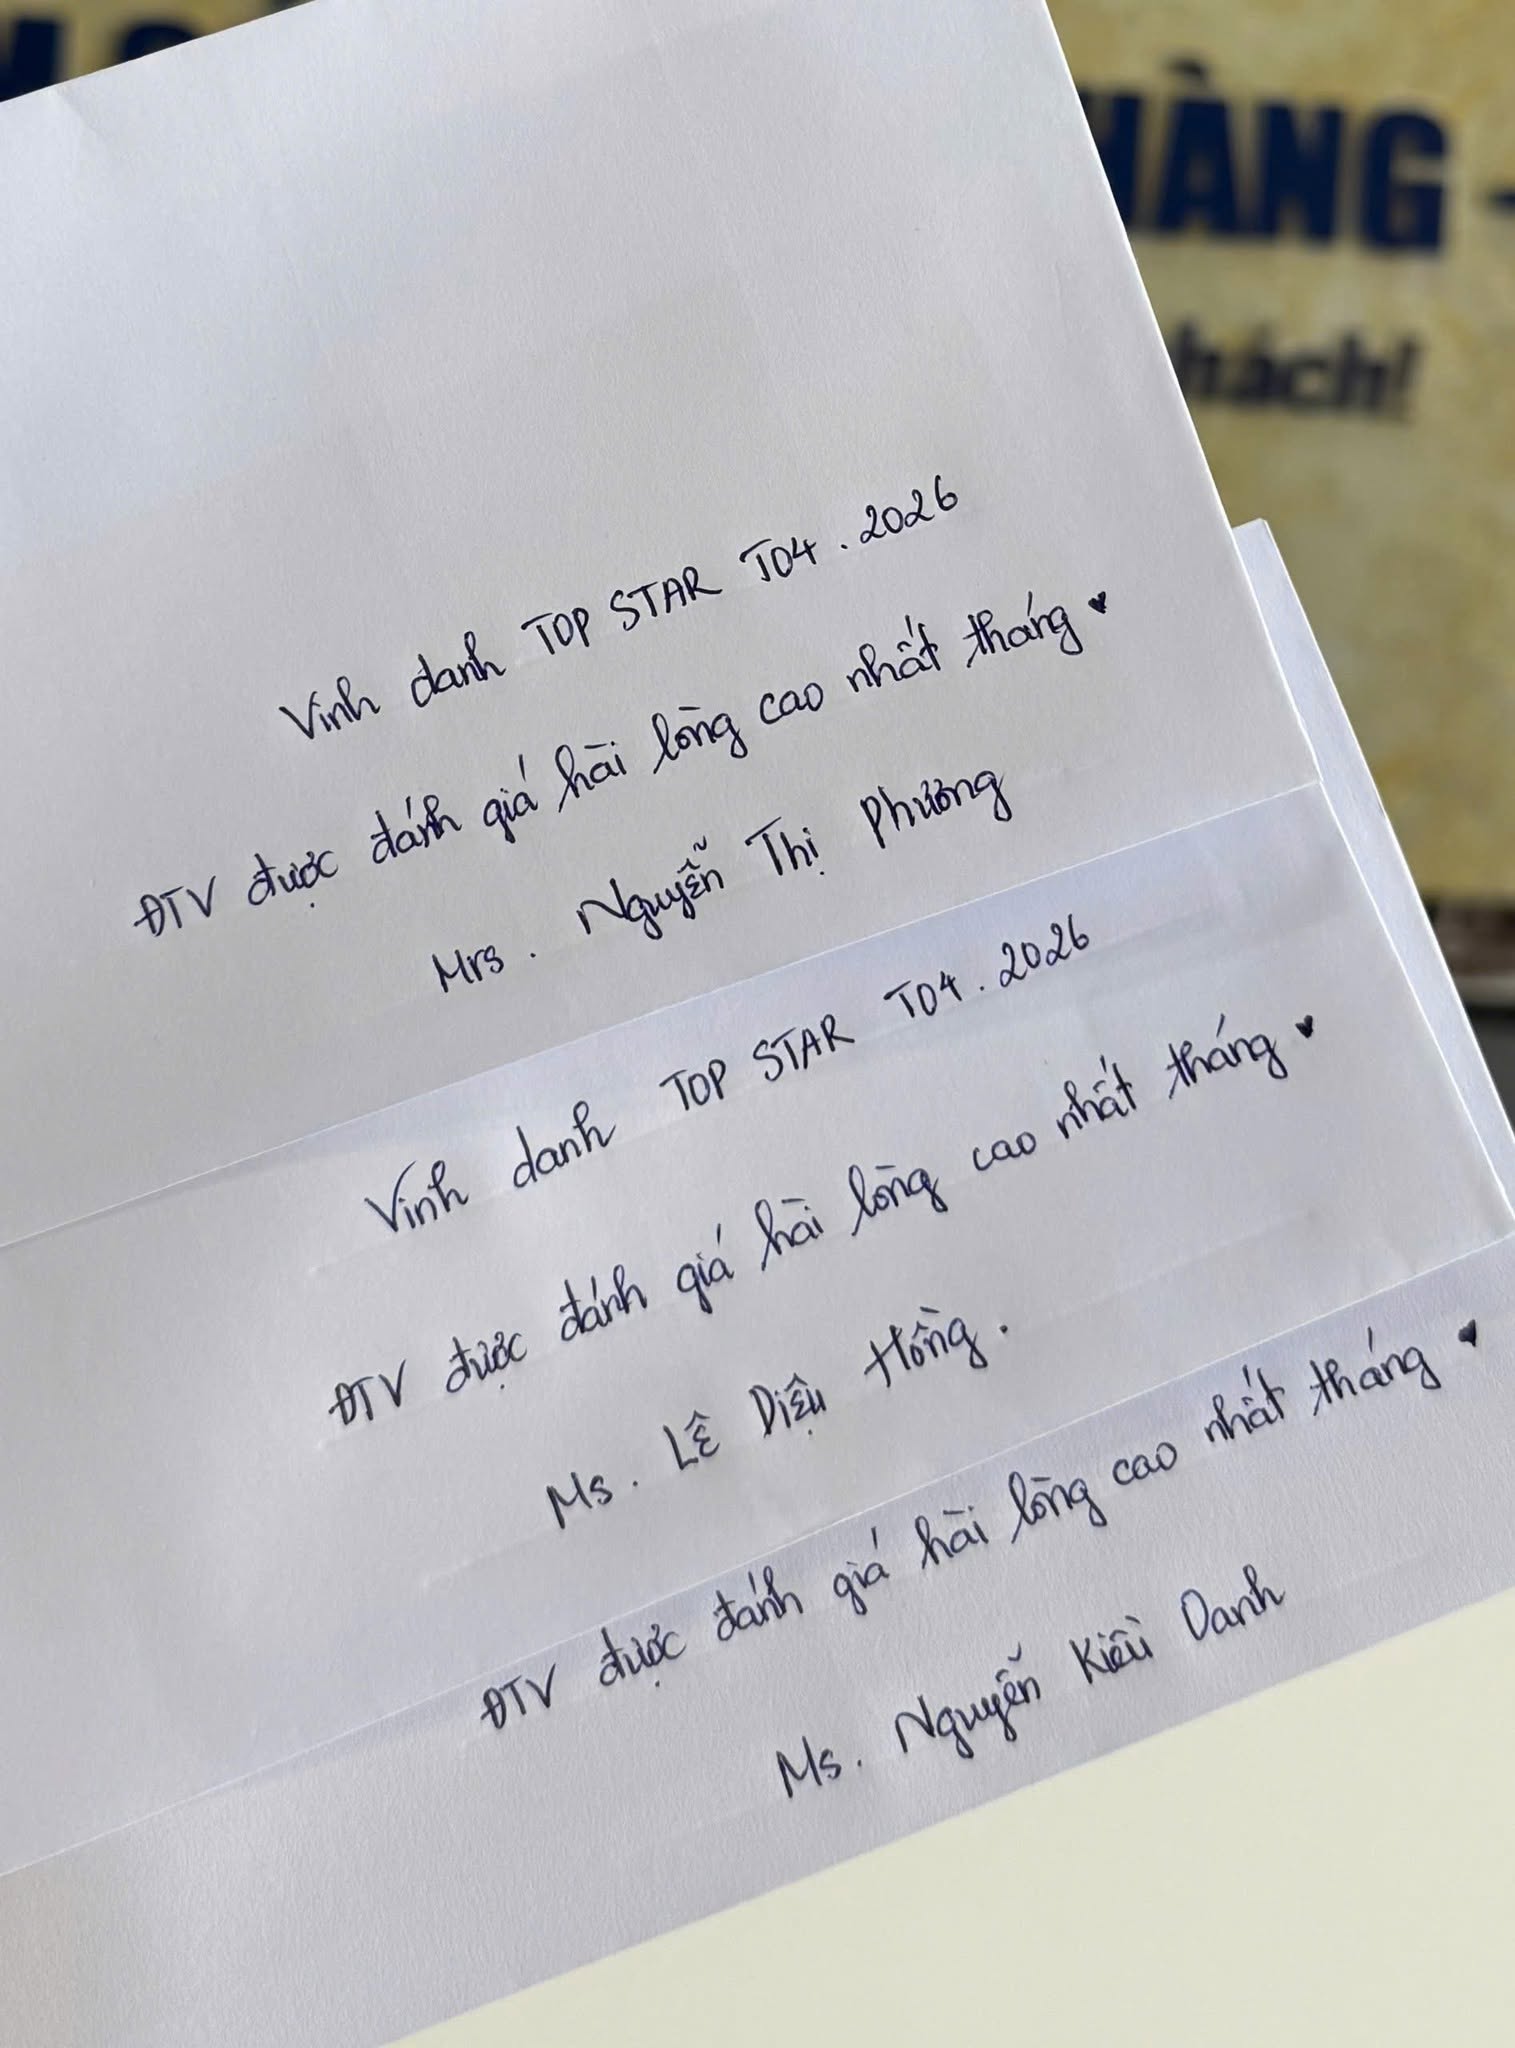 HÀNG -
hách!
Vinh danh TOP STAR T04.2026
ĐTV được đánh giá hài lòng cao nhất tháng ♥
Mrs. Nguyễn Thị Phương
Vinh danh TOP STAR T04.2026
ĐTV được đánh giá hài lòng cao nhất tháng ♥
Ms. Lê Diệu Hồng.
ĐTV được đánh giá hài lòng cao nhất tháng ♥
Ms. Nguyễn Kiều Oanh